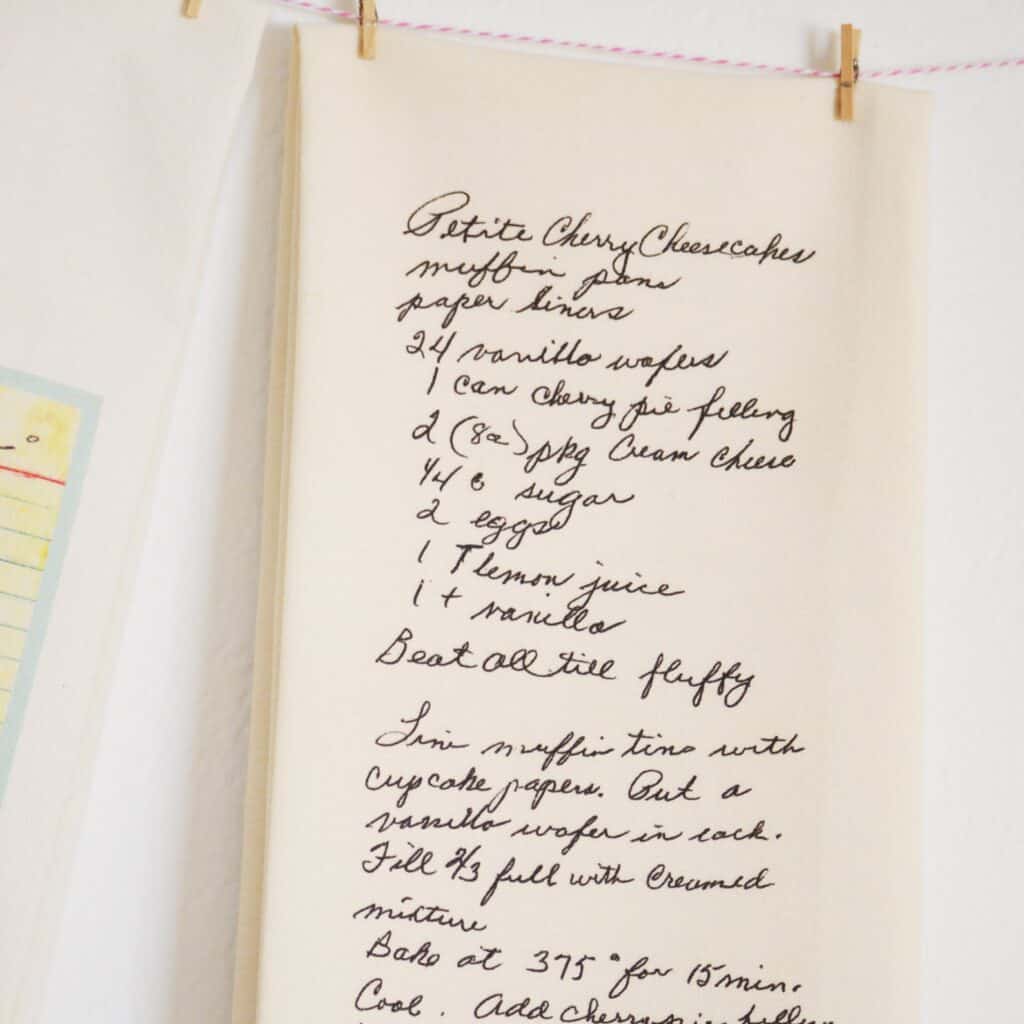 Petite Cherry Cheesecakes
muffin pans
paper liners
24 vanilla wafers
1 can cherry pie filling
2 (8oz) pkg Cream cheese
1/4 c sugar
2 eggs
1 T lemon juice
1 t vanilla
Beat all till fluffy
Line muffin tins with
cupcake papers. Put a
vanilla wafer in each.
Fill 2/3 full with creamed
mixture
Bake at 375° for 15 min.
Cool. Add cherry pie filling